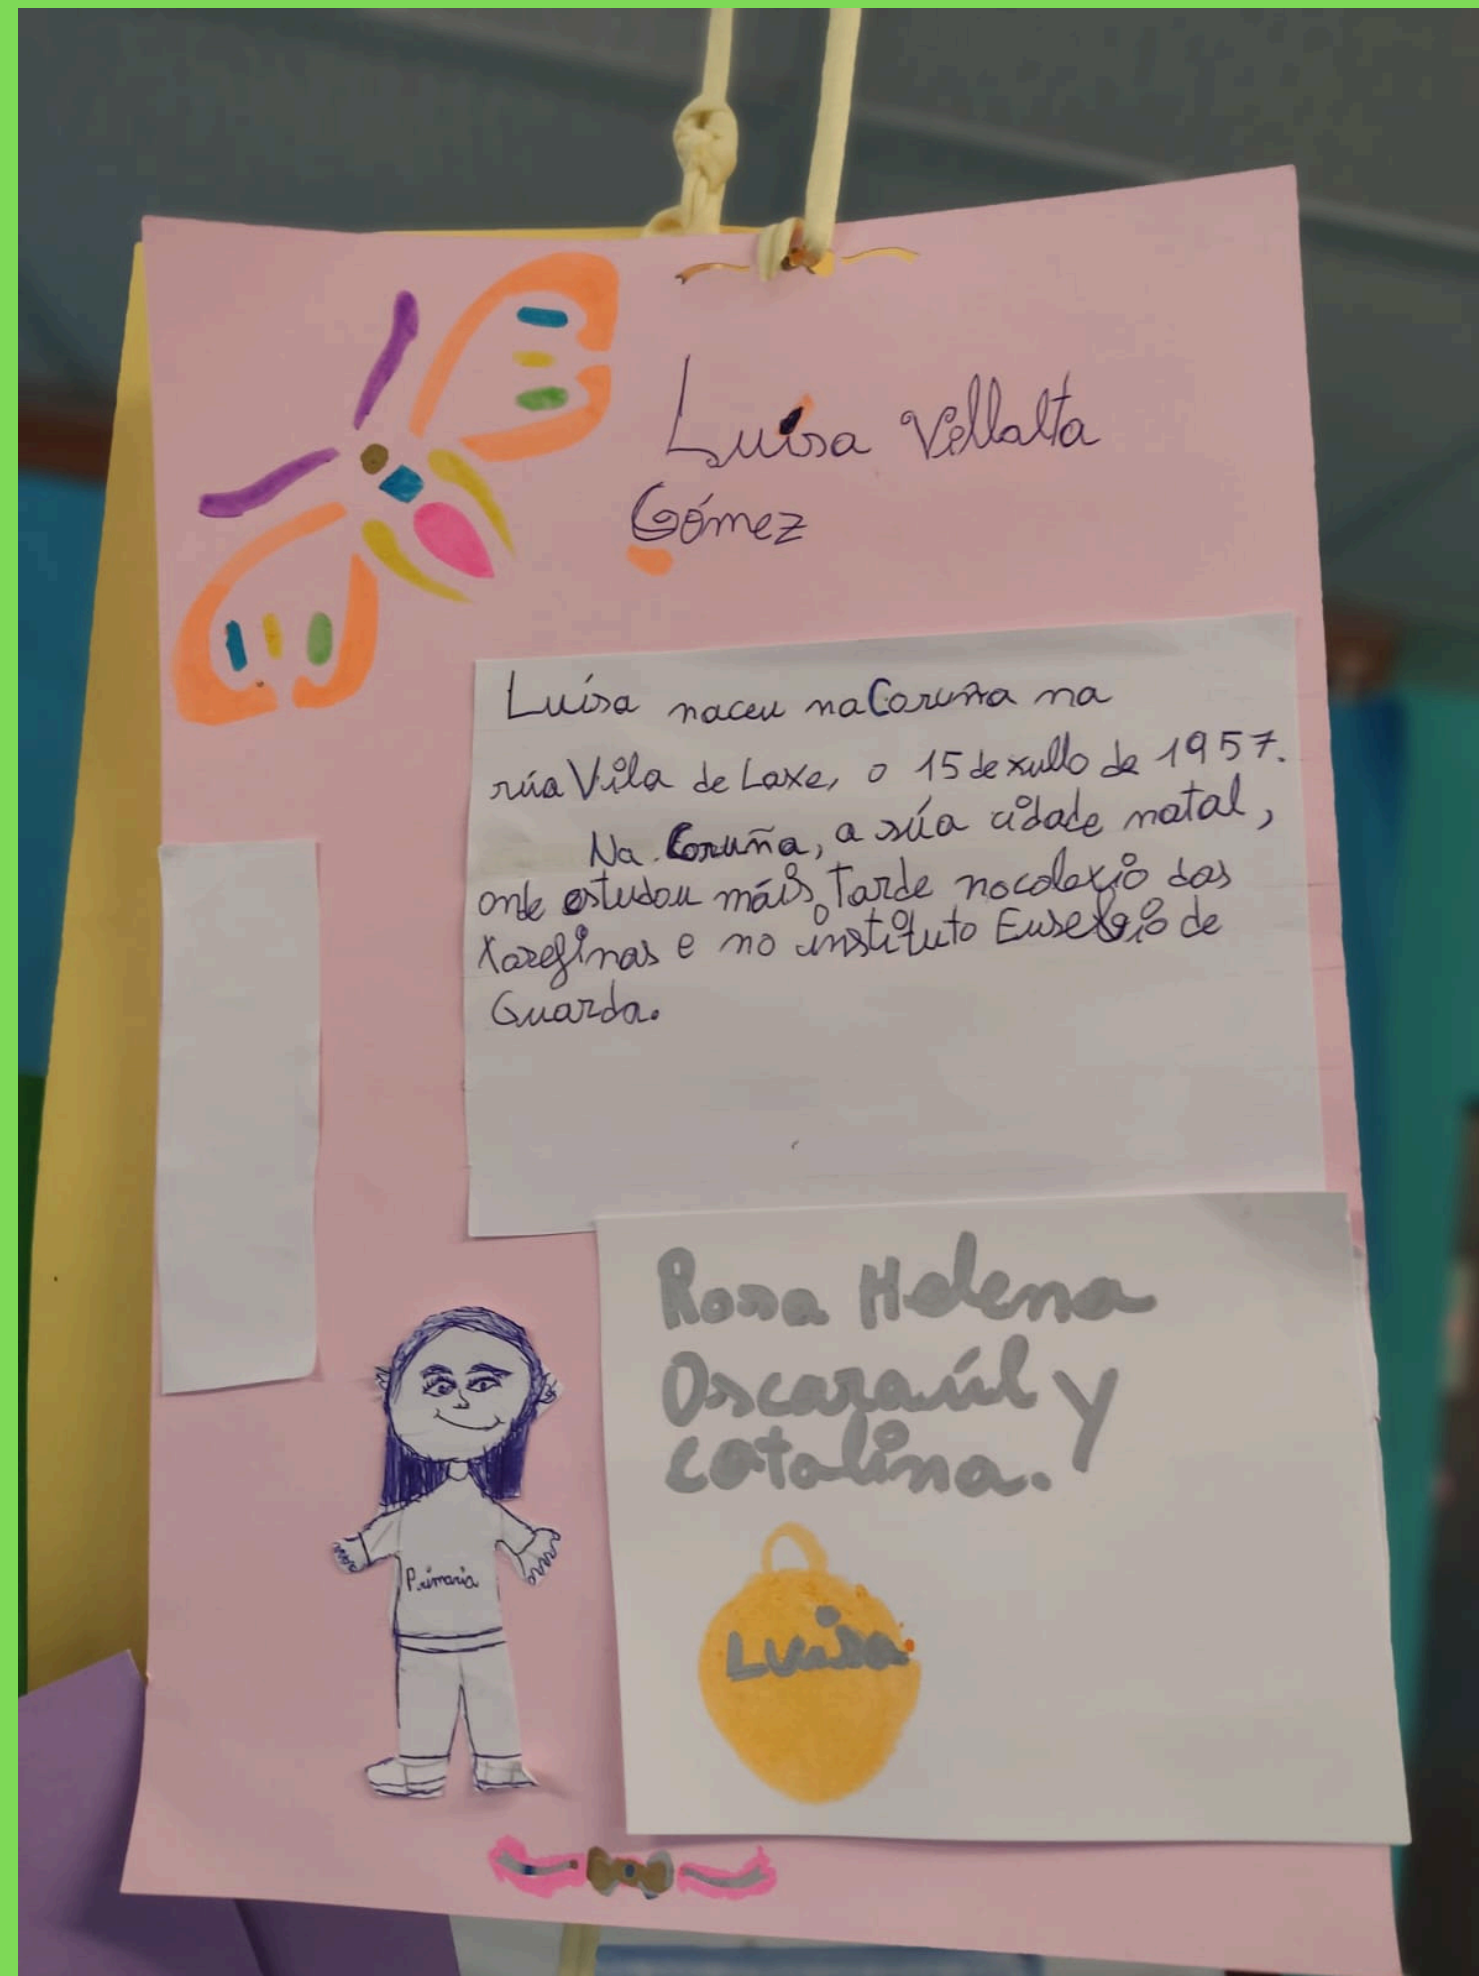 Luísa Villalta
Gómez
Luísa naceu na Coruña na
rúa Vila de Laxe, o 15 de xullo de 1957.
Na Coruña, a súa cidade natal,
onde estudou máis tarde no colexio das
Xarefinas e no instituto Eusebio de
Guarda.
Rosa Helena
Oscar raúl y
catalina.
Primaria
Luisa